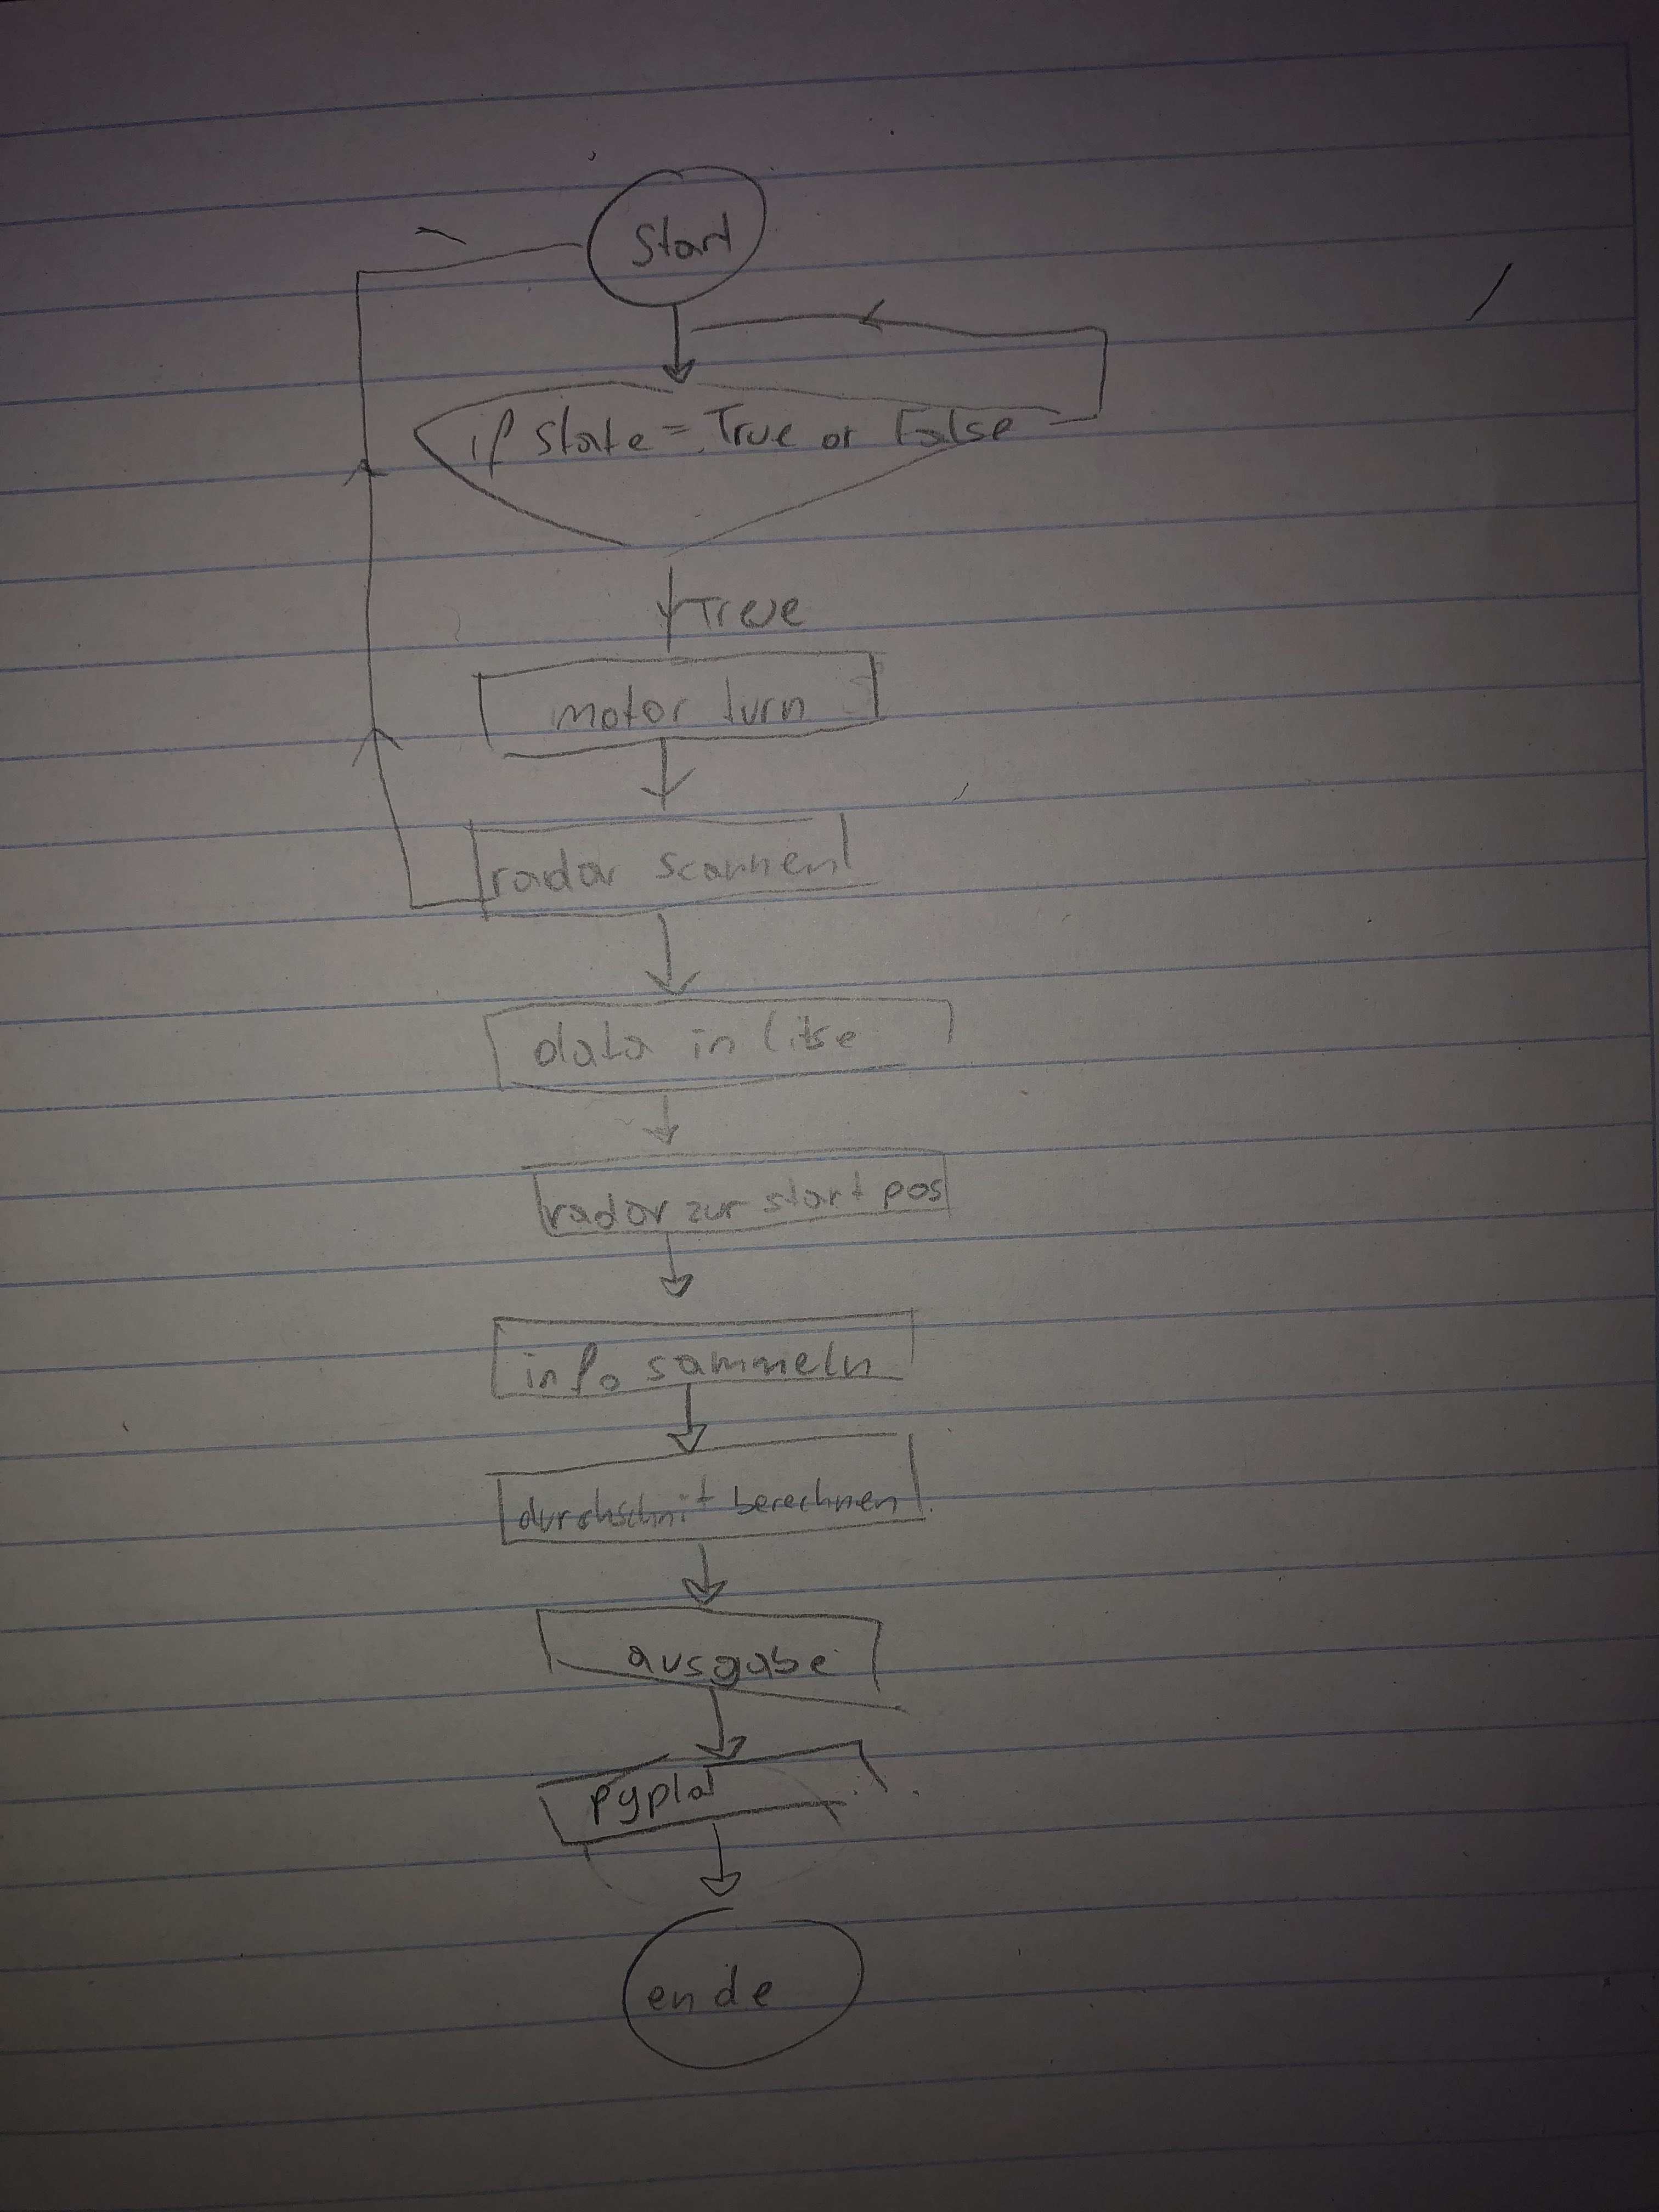 Start
if State = True or False
True
motor turn
radar scannen
data in litse
radar zur start pos
info sammeln
durchschnit berechnen
ausgabe
pyplot
ende